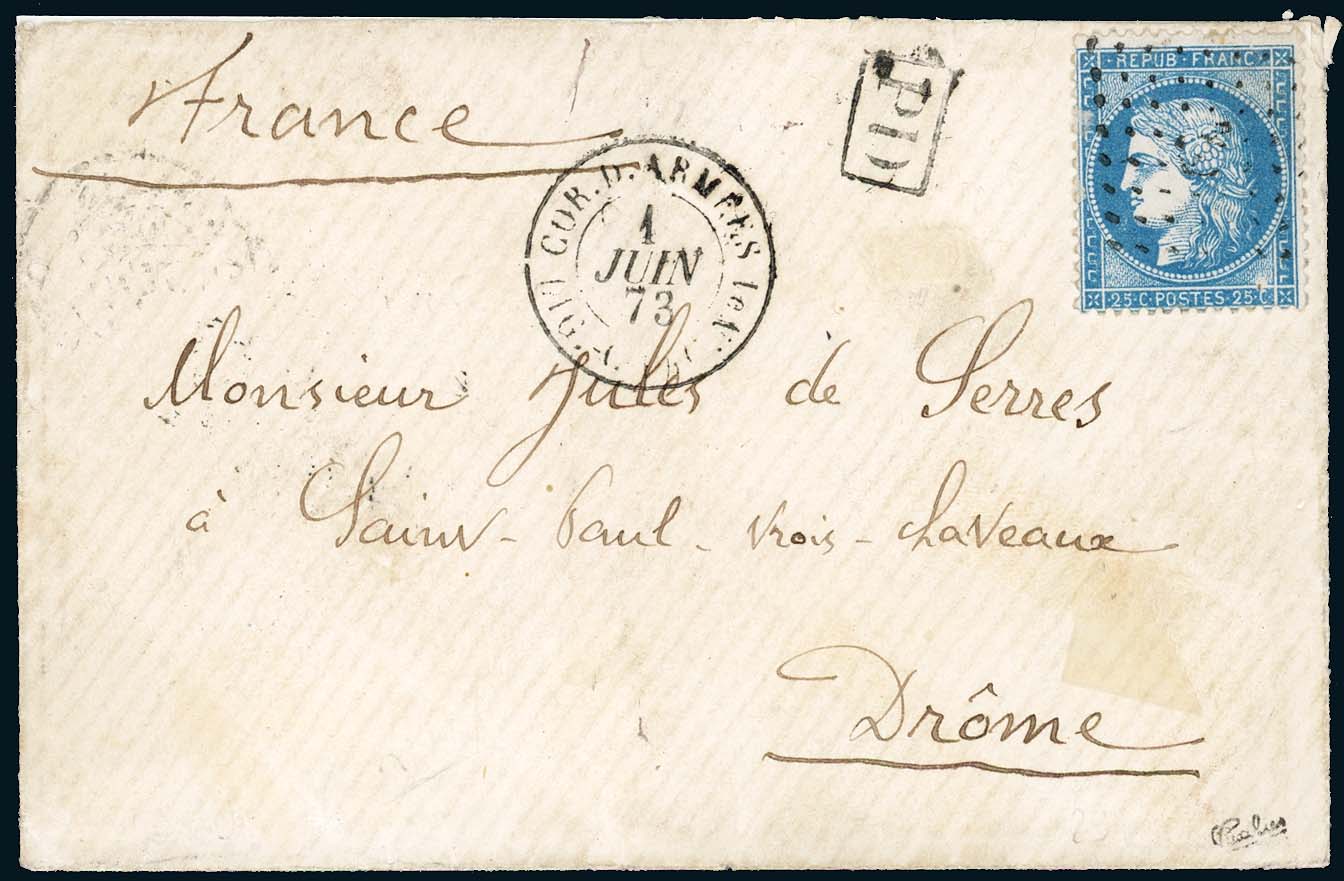 France
PD
REPUB·FRANC
25·C·POSTES·25·C
COR. D. ARMEES
1
JUIN
73
Monsieur Jules de Serres
à Saint-Paul-trois-chateaux
Drôme